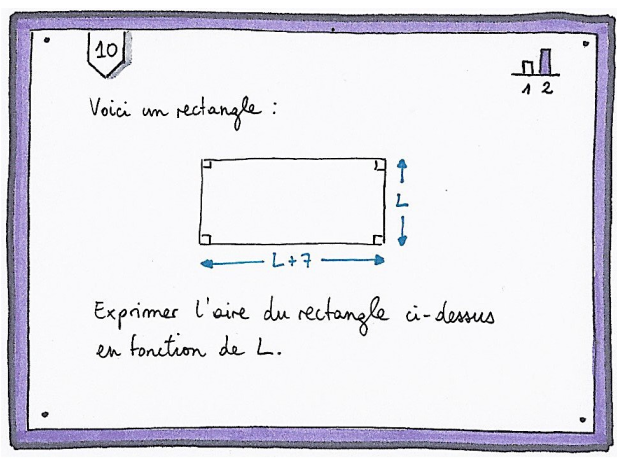 10
1 2
Voici un rectangle :
L
L+7
Exprimer l'aire du rectangle ci-dessus
en fonction de L.